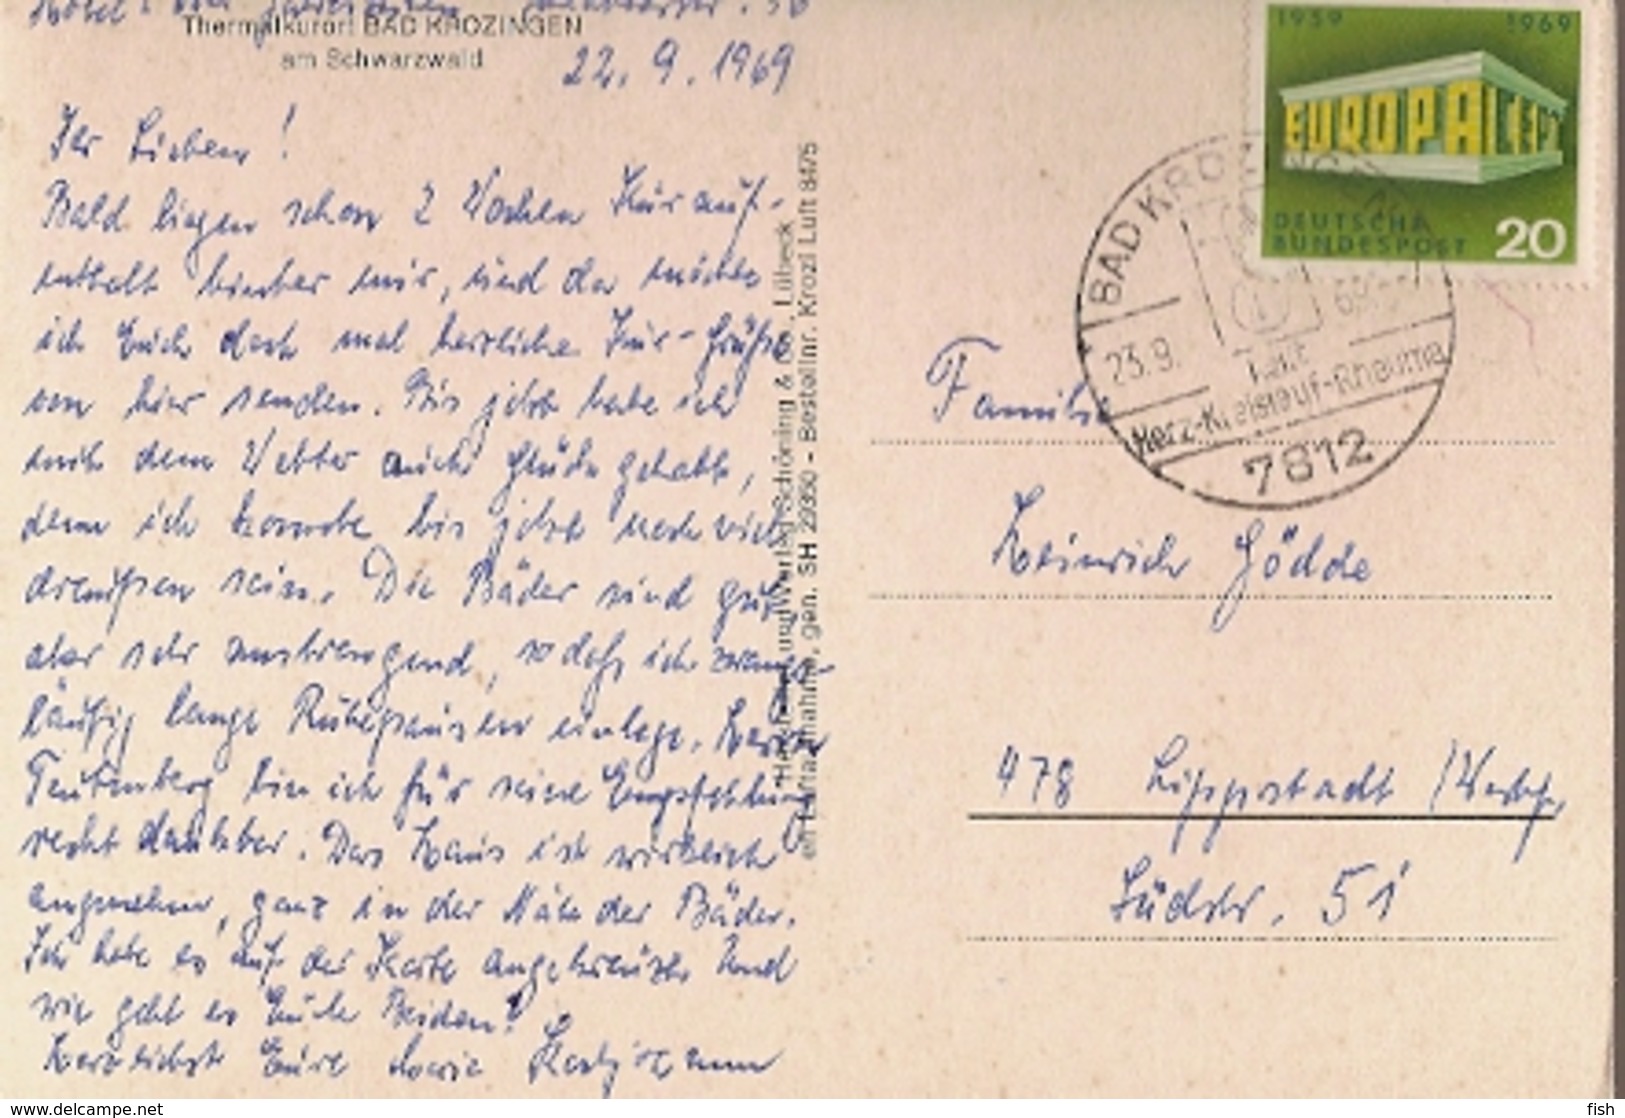 Thermalkurort BAD KROZINGEN
am Schwarzwald
22. 9. 1969
Ihr Lieben!
Bald liegen schon 2 Wochen Kürauf-
enthalt hinter mir, und da möchte
ich Euch doch mal herzliche Kur-Grüße
von hier senden. Bis jetzt habe ich
mit dem Wetter auch Glück gehabt,
denn ich konnte bis jetzt noch viel
draußen sein. Die Bäder sind gut
aber sehr anstrengend, so daß ich zwangs-
läufig lange Ruhepausen einlege. Herrn
Teutenberg bin ich für seine Empfehlung
recht dankbar. Das Haus ist wirklich
angenehm, ganz in der Nähe der Bäder.
Ich habe es auf der Karte angekreuzt. Und
wie geht es Euch Beiden?
Herzlichst Eure
Verlag Schöning & Co., Lübeck
gen. SH 29350 - Bestellnr. Krozi Luft 8475
1959 1969
EUROPA CEPT
DEUTSCHE
BUNDESPOST 20
BAD KROZINGEN
23.9. 69
Herz-Kreislauf-Rheuma
7812
Familie
Heinrich Gödde
478 Lippstadt /Westf.
Südstr. 51
www.delcampe.net
fish